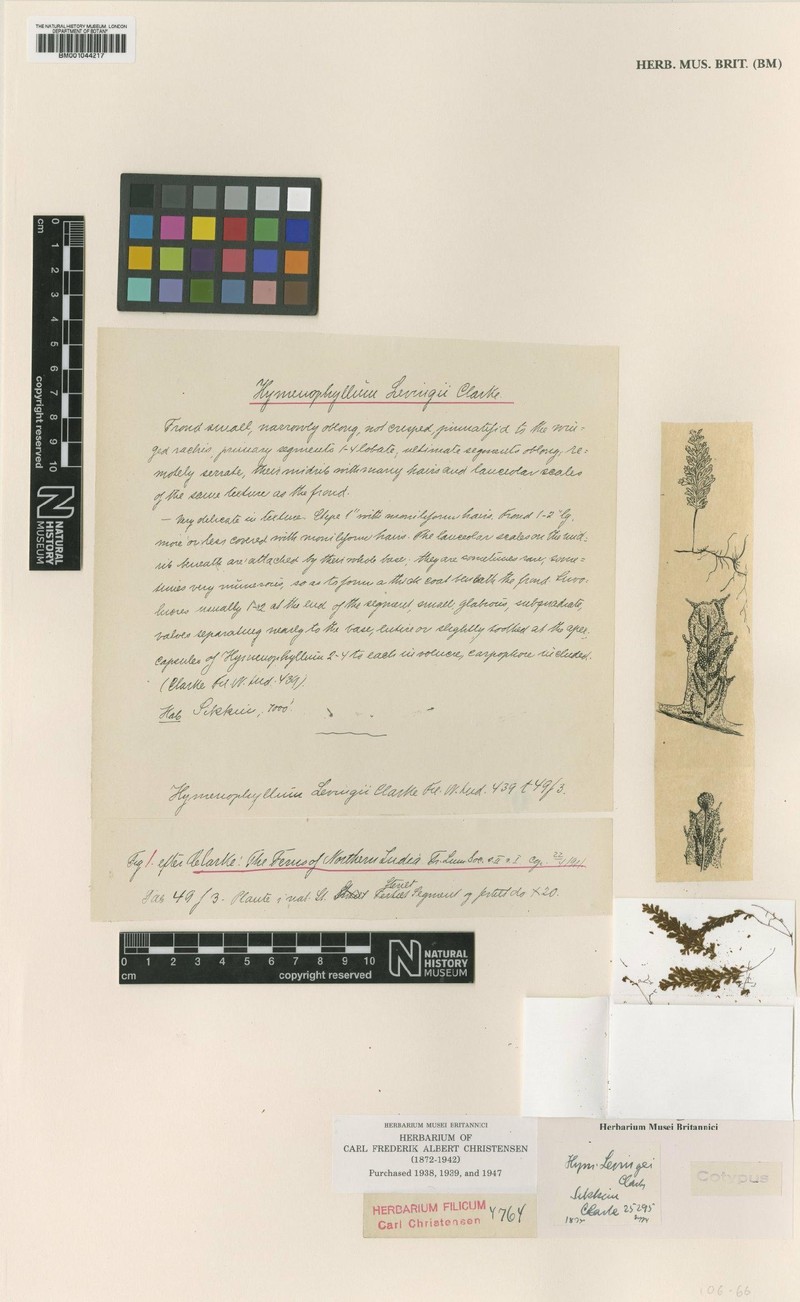 THE NATURAL HISTORY MUSEUM, LONDON
DEPARTMENT OF BOTANY
BM001044217
HERB. MUS. BRIT. (BM)
cm 0 1 2 3 4 5 6 7 8 9 10
copyright reserved
NATURAL
HISTORY
MUSEUM
Hymenophyllum Levingii Clarke.
Frond small, narrowly oblong, not crisped, pinnatifid to the win=
ged rachis, primary segments 1-4 lobate, ultimate segments oblong, re=
motely serrate, their midrib with many hairs and lanceolar scales
of the same texture as the frond.
— Very delicate in texture. Stipe 1" with moniliform hairs. Frond 1-2" lg.
more or less covered with moniliform hairs. The lanceolar scales on the mid=
rib beneath are attached by their whole base; they are sometimes rare, some=
times very numerous, so as to form a thick coat beneath the frond. Invo=
lucres usually 1-2 at the end of the segment, small, glabrous, subquadrate,
valves separating nearly to the base, entire or slightly toothed at the apex,
capsules of Hymenophyllum 2-4 to each involucre, carpophore included.
(Clarke Fil. N. Ind. 439).
Hab Sikkim, 7000'
Hymenophyllum Levingii Clarke Fil. N. Ind. 439 t 49/3.
Fig 1. efter Clarke: The Ferns of Northern India Tr. Linn Soc. s. II v. I
Tab 49 f 3. Plante i nat. St. Steriet Segment og fertil do × 20.
0 1 2 3 4 5 6 7 8 9 10
cm
copyright reserved
NATURAL
HISTORY
MUSEUM
HERBARIUM MUSEI BRITANNICI
HERBARIUM OF
CARL FREDERIK ALBERT CHRISTENSEN
(1872-1942)
Purchased 1938, 1939, and 1947
HERBARIUM FILICUM
Carl Christensen
4764
Herbarium Musei Britannici
Hym. Levingei
Clarke
Sikkim
Clarke 25295
Cotypus
106-66